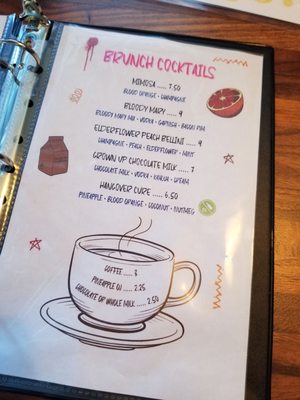 BRUNCH COCKTAILS
MIMOSA ..... 7.50
BLOOD ORANGE • CHAMPAGNE
BLOODY MARY ..... 9
BLOODY MARY MIX • VODKA • GARNISH • BACON RIM
ELDERFLOWER PEACH BELLINI ..... 9
CHAMPAGNE • PEACH • ELDERFLOWER • MINT
GROWN UP CHOCOLATE MILK ..... 7
CHOCOLATE MILK • VODKA • KAHLUA • CREAM
HANGOVER CURE ..... 6.50
PINEAPPLE • BLOOD ORANGE • COCONUT • NUTMEG
COFFEE ..... 3
PINEAPPLE OJ ..... 2.25
CHOCOLATE OR WHOLE MILK ..... 2.50